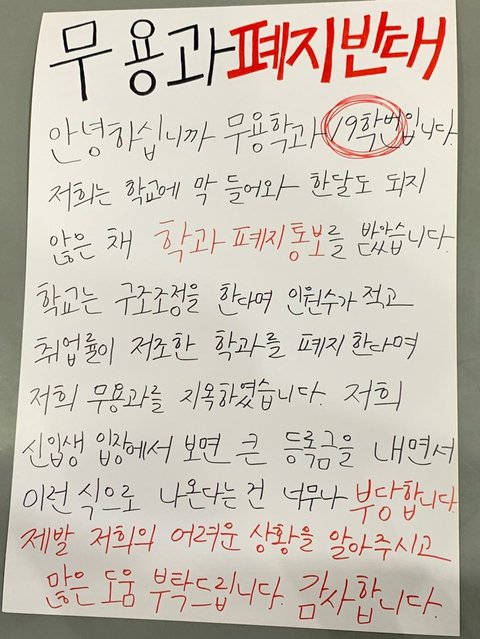 무용과폐지반대
안녕하십니까 무용학과 19학번입니다.
저희는 학교에 막 들어와 한달도 되지
않은 채 학과 폐지통보를 받았습니다.
학교는 구조조정을 한다며 인원수가 적고
취업률이 저조한 학과를 폐지한다며
저희 무용과를 지목하였습니다. 저희
신입생 입장에서 보면 큰 등록금을 내면서
이런 식으로 나온다는 건 너무나 부당합니다.
제발 저희의 어려운 상황을 알아주시고
많은 도움 부탁드립니다. 감사합니다.